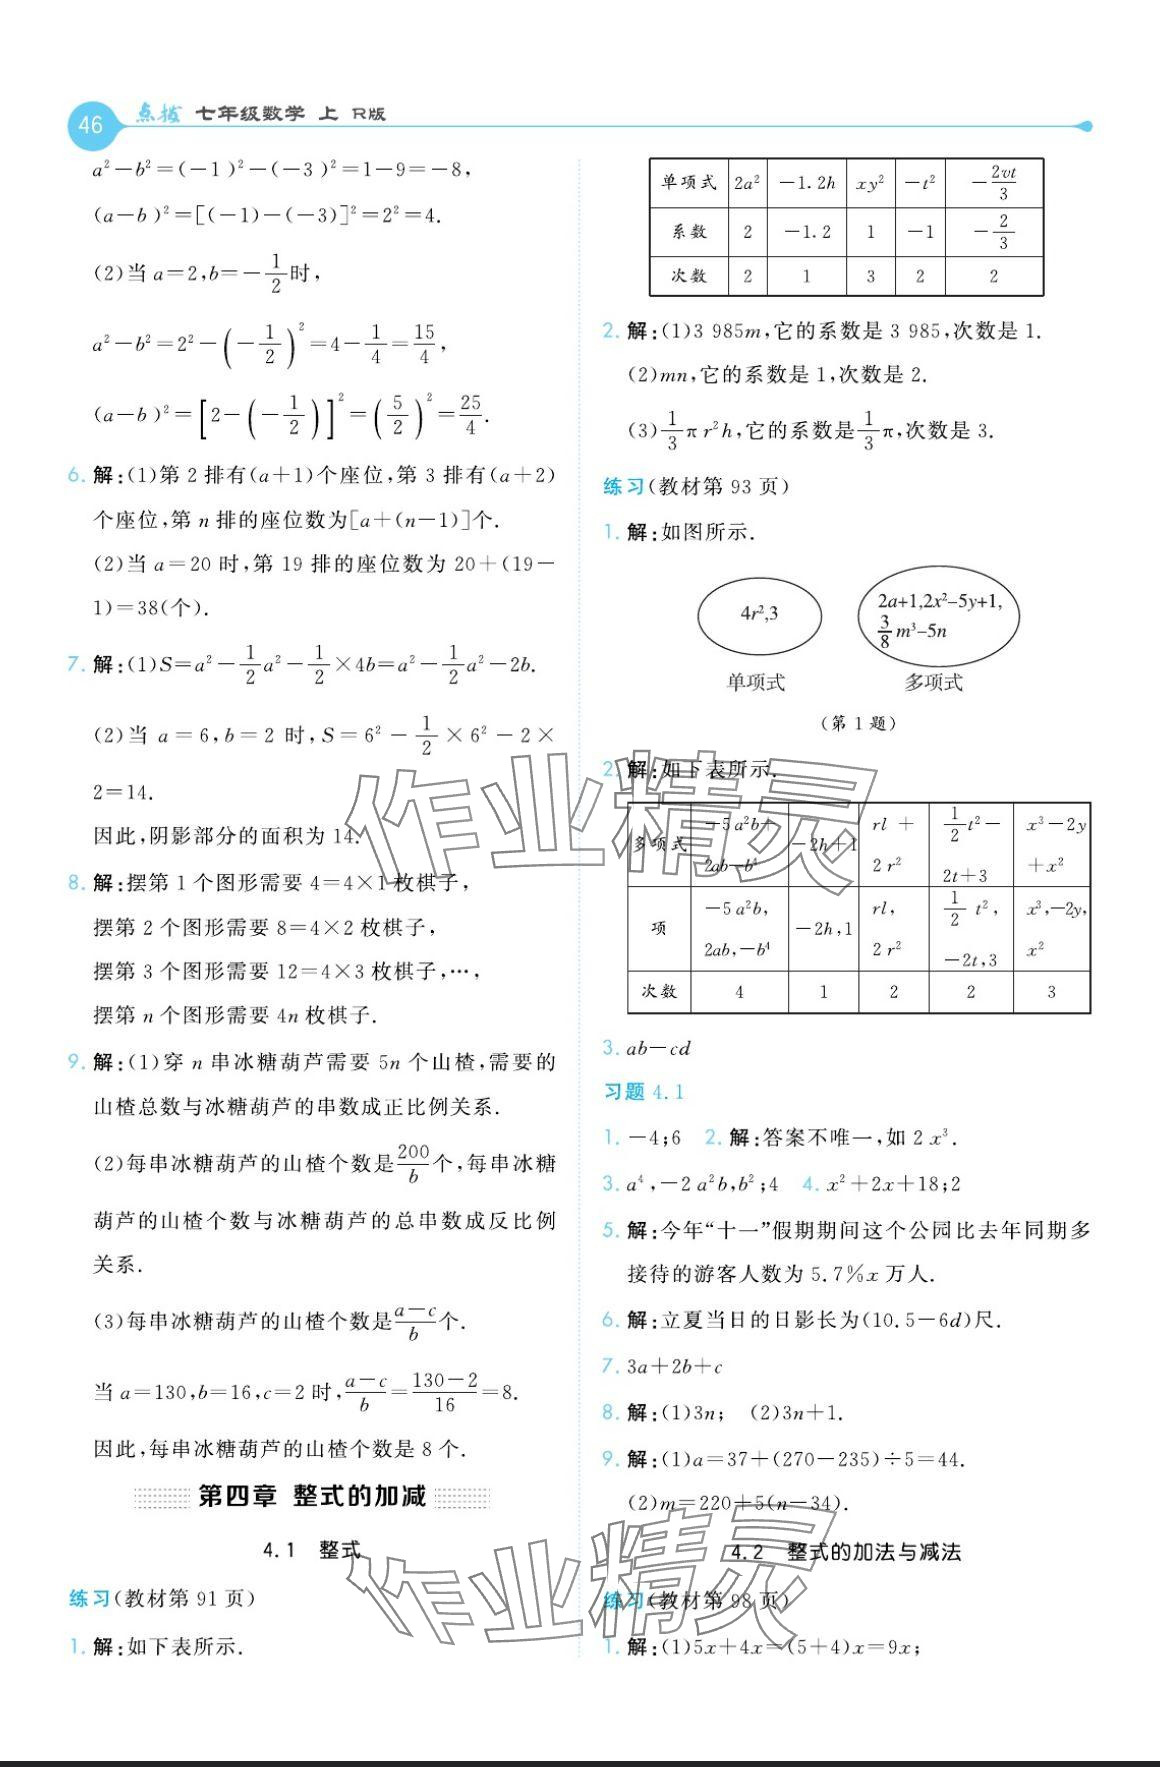 46 点拨 七年级数学 上 R版
a²－b²＝(－1)²－(－3)²＝1－9＝－8,
(a－b)²＝[(－1)－(－3)]²＝2²＝4.
(2)当 a＝2,b＝－1/2时,
a²－b²＝2²－(－1/2)²＝4－1/4＝15/4,
(a－b)²＝[2－(－1/2)]²＝(5/2)²＝25/4.
6. 解:(1)第 2 排有(a＋1)个座位,第 3 排有(a＋2)
个座位,第 n 排的座位数为[a＋(n－1)]个.
(2)当 a＝20 时,第 19 排的座位数为 20＋(19－
1)＝38(个).
7. 解:(1)S＝a²－1/2a²－1/2×4b＝a²－1/2a²－2b.
(2)当 a＝6,b＝2 时,S＝6²－1/2×6²－2×
2＝14.
因此,阴影部分的面积为 14.
8. 解:摆第 1 个图形需要 4＝4×1 枚棋子,
摆第 2 个图形需要 8＝4×2 枚棋子,
摆第 3 个图形需要 12＝4×3 枚棋子,…,
摆第 n 个图形需要 4n 枚棋子.
9. 解:(1)穿 n 串冰糖葫芦需要 5n 个山楂,需要的
山楂总数与冰糖葫芦的串数成正比例关系.
(2)每串冰糖葫芦的山楂个数是200/b个,每串冰糖
葫芦的山楂个数与冰糖葫芦的总串数成反比例
关系.
(3)每串冰糖葫芦的山楂个数是(a－c)/b个.
当 a＝130,b＝16,c＝2 时,(a－c)/b＝(130－2)/16＝8.
因此,每串冰糖葫芦的山楂个数是 8 个.
第四章 整式的加减
4.1 整式
练习(教材第 91 页)
1. 解:如下表所示.
单项式 2a² －1.2h xy² －t² －2vt/3
系数 2 －1.2 1 －1 －2/3
次数 2 1 3 2 2
2. 解:(1)3 985m,它的系数是 3 985,次数是 1.
(2)mn,它的系数是 1,次数是 2.
(3)1/3πr²h,它的系数是1/3π,次数是 3.
练习(教材第 93 页)
1. 解:如图所示.
4r²,3
2a+1,2x²–5y+1,
3/8 m³–5n
单项式 多项式
(第 1 题)
2. 解:如下表所示.
多项式 －5a²b＋2ab－b⁴ －2h＋1 rl＋2r² 1/2t²－2t＋3 x³－2y＋x²
项 －5a²b,2ab,－b⁴ －2h,1 rl,2r² 1/2t²,－2t,3 x³,－2y,x²
次数 4 1 2 2 3
3. ab－cd
习题 4.1
1. －4;6 2. 解:答案不唯一,如 2x³.
3. a⁴,－2a²b,b²;4 4. x²＋2x＋18;2
5. 解:今年“十一”假期期间这个公园比去年同期多
接待的游客人数为 5.7%x 万人.
6. 解:立夏当日的日影长为(10.5－6d)尺.
7. 3a＋2b＋c
8. 解:(1)3n; (2)3n＋1.
9. 解:(1)a＝37＋(270－235)÷5＝44.
(2)m＝220＋5(n－34).
4.2 整式的加法与减法
练习(教材第 98 页)
1. 解:(1)5x＋4x＝(5＋4)x＝9x;
作业精灵
作业精灵